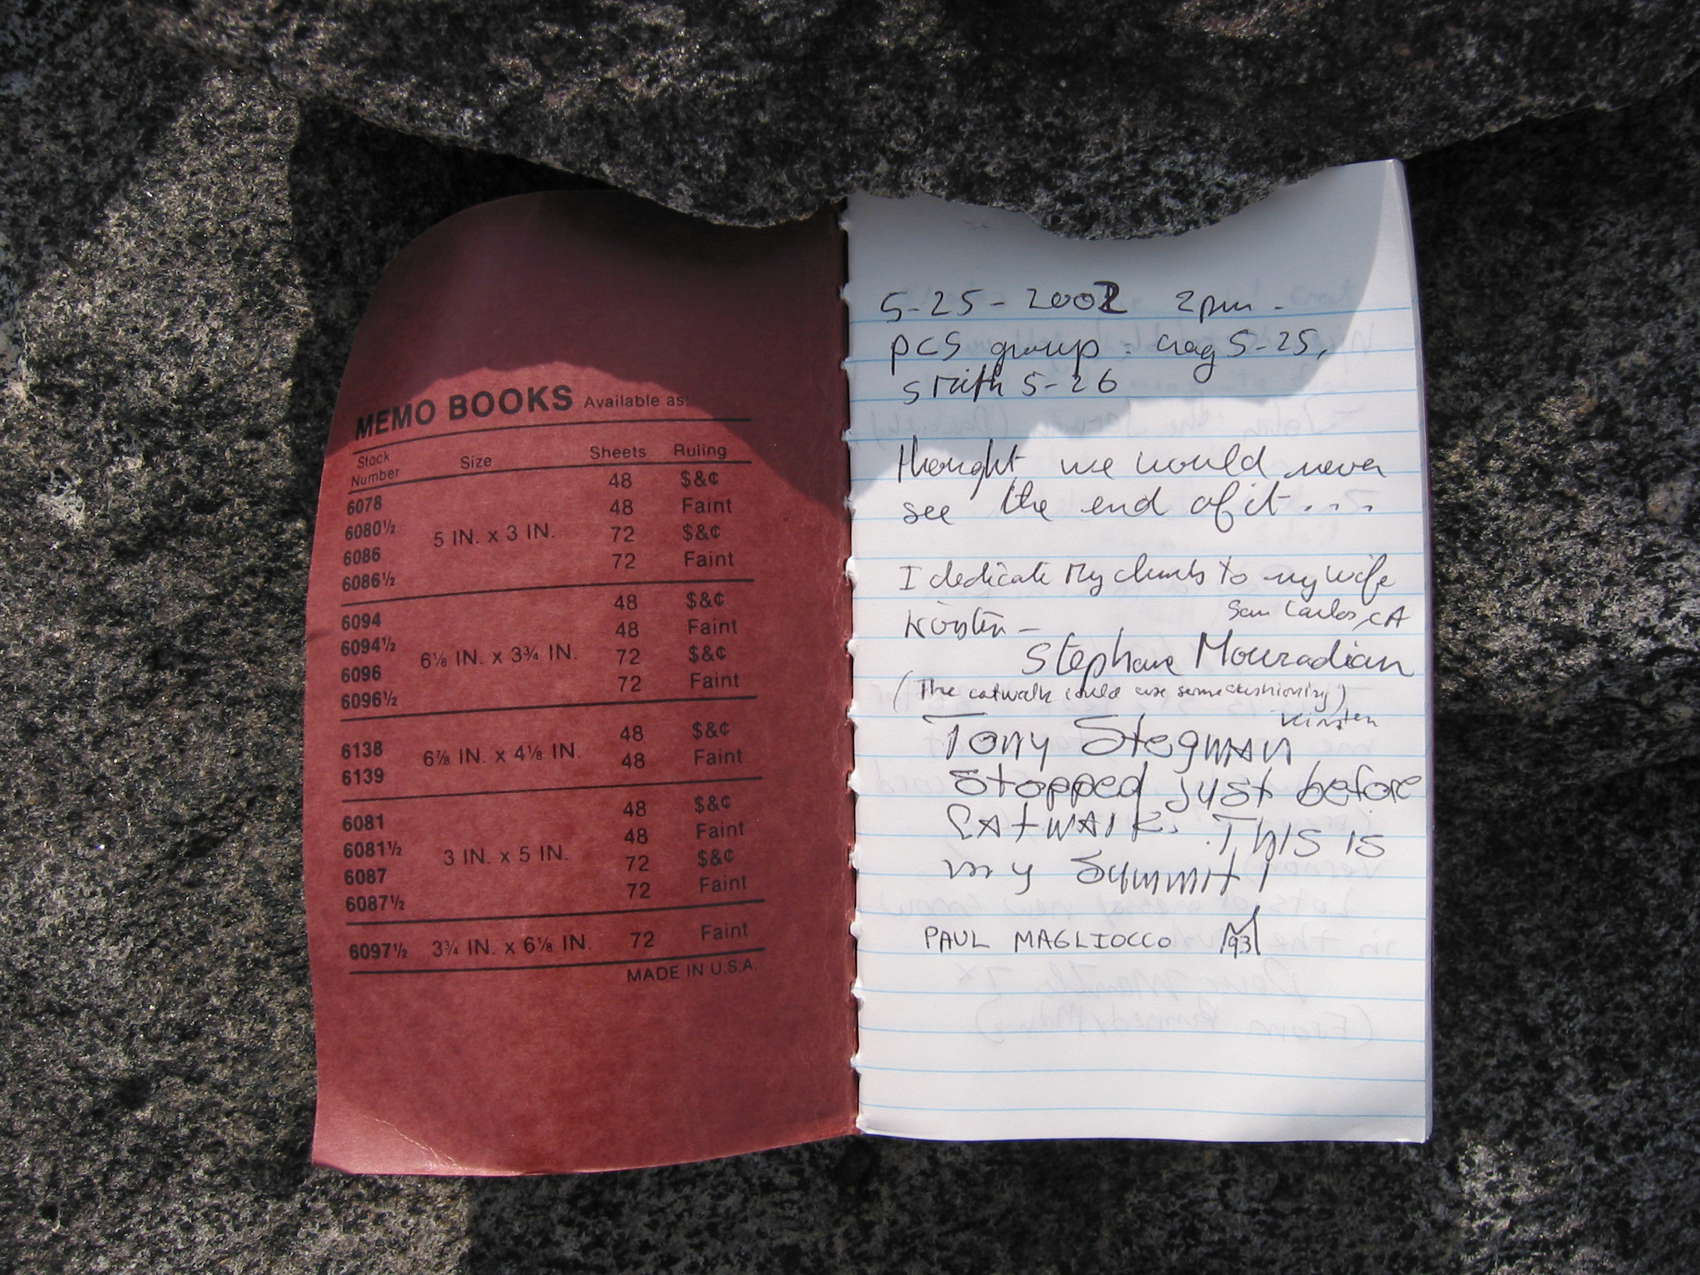 MEMO BOOKS Available as:
Stock Number Size Sheets Ruling
6078 48 $&¢
6080½ 48 Faint
6086 5 IN. x 3 IN. 72 $&¢
6086½ 72 Faint
6094 48 $&¢
6094½ 48 Faint
6096 6⅛ IN. x 3¾ IN. 72 $&¢
6096½ 72 Faint
6138 48 $&¢
6139 6⅞ IN. x 4⅛ IN. 48 Faint
6081 48 $&¢
6081½ 48 Faint
6087 3 IN. x 5 IN. 72 $&¢
6087½ 72 Faint
6097½ 3¾ IN. x 6⅛ IN. 72 Faint
MADE IN U.S.A.
5-25-2002 2pm -
PCS group: crag 5-25,
smith 5-26
thought we would never
see the end of it...
I dedicate my climb to my wife
Kirsten - San Carlos, CA
Stephane Mouradian
(The catwalk could use some cushioning)
Kirsten
Tony Stegman
Stopped just before
CAtWALK. This is
my Summit!
PAUL MAGLIOCCO